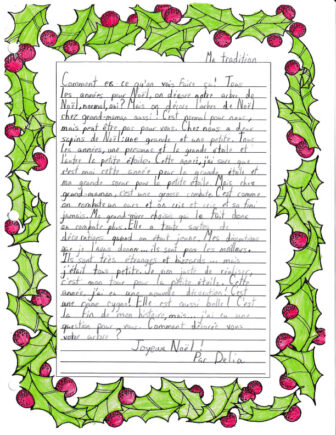 Ma tradition
Comment es ce qu'on vais faire ça! Tous
les années pour Noël, on décore notre arbre de
Noël, normal, oui? Mais on décore l'arbre de Noël
chez grand-maman aussi! C'est normal pour nous,
mais peut être pas pour vous. Chez nous a deux
sapins de Noël: une grande et une petite. Tous
les années, une personne et la grande étoile et
l'autre la petite étoile. Cette année, j'ai sais que
c'est moi cette année pour la grande étoile et
ma grande sœur pour la petite étoile. Mais chez
grand-maman, c'est une guerre combat. C'est comme
on combate un ours et on crie et crie et se fini
jamais. Ma grand-mère choisi qui le fait donc
on combate plus. Elle a toute sortes
décorations quand on était jeune. Les décorations
que je lui donne... ils sont pas les meilleurs.
Ils sont très étranges et bizarres... mais
j'étais tous petite. Je viens juste de réaliser,
c'est mon tour pour la petite étoile. Cette
année, j'ai eu une nouvelle décoration! C'est
une cygne. Elle est aussi belle! C'est
la fin de mon histoire, mais... j'ai eu une
question pour vous. Comment décorez vous
votre arbre?
Joyeux Noël!
Par Delia